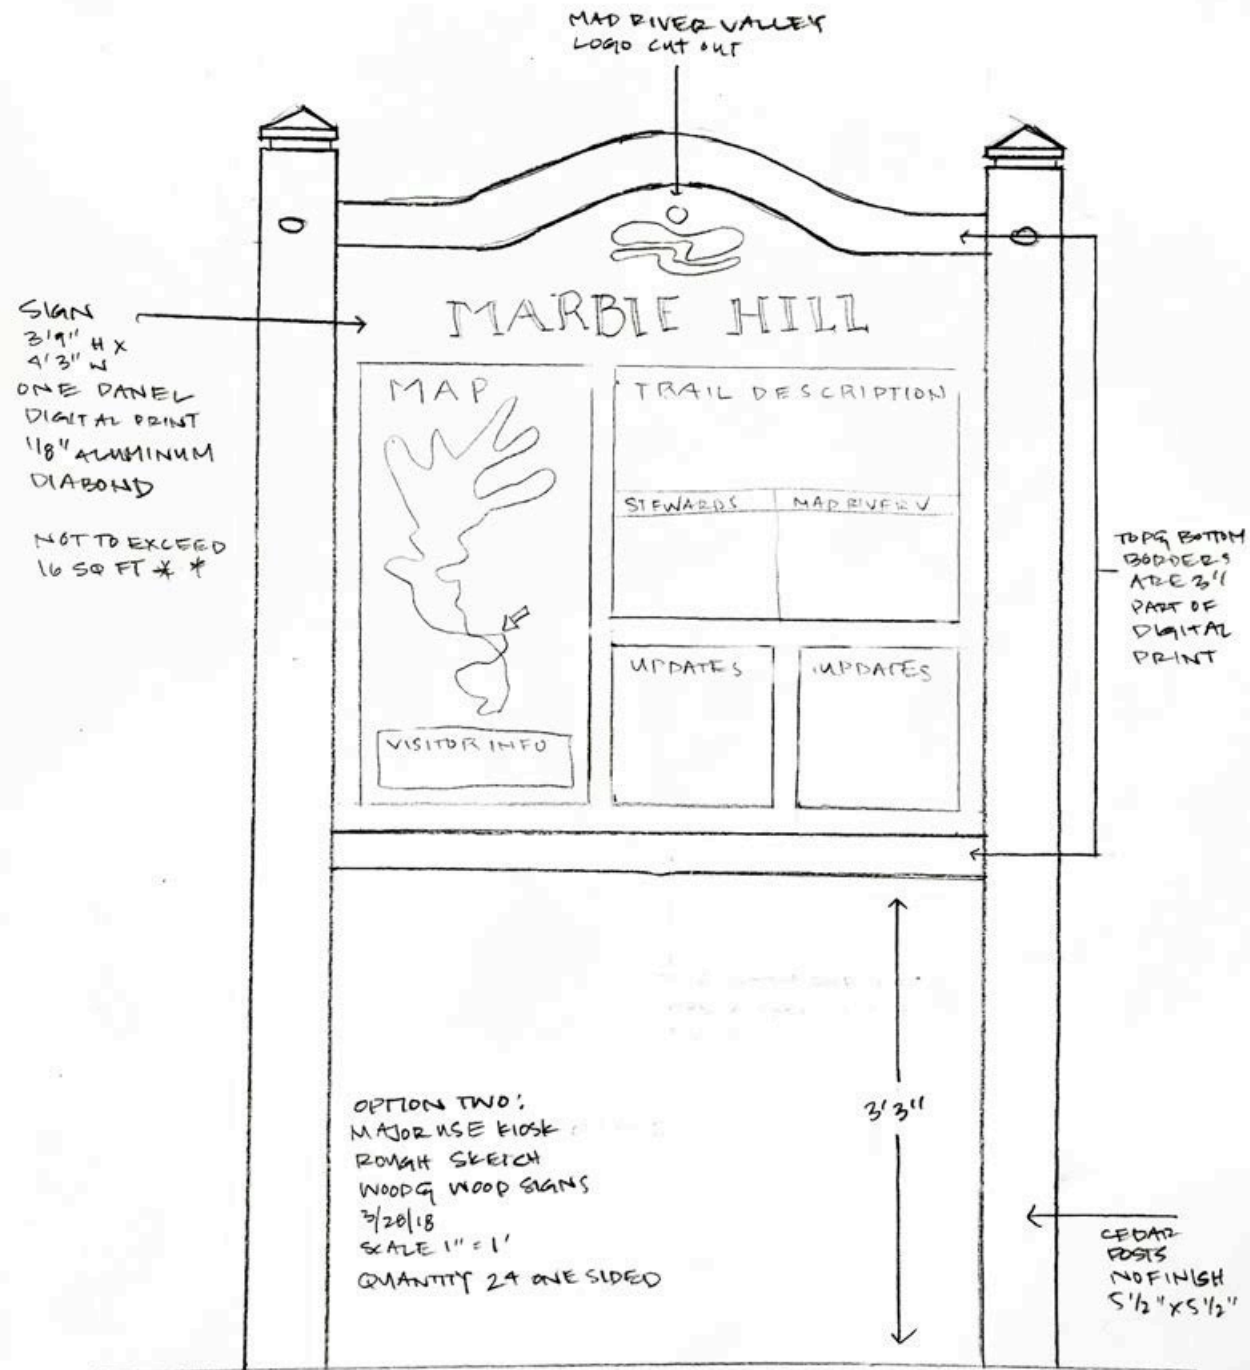 MAD RIVER VALLEY
LOGO CUT OUT
SIGN
3'9" H X
4'3" W
ONE PANEL
DIGITAL PRINT
1/8" ALUMINUM
DIABOND
NOT TO EXCEED
16 SQ FT * *
MARBLE HILL
MAP
VISITOR INFO
TRAIL DESCRIPTION
STEWARDS
MAD RIVER V
UPDATES
UPDATES
TOP & BOTTOM
BORDERS
ARE 3"
PART OF
DIGITAL
PRINT
3'3"
OPTION TWO:
MAJOR USE KIOSK
ROUGH SKETCH
WOOD & WOOD SIGNS
3/28/18
SCALE 1" = 1'
QUANTITY 24 ONE SIDED
CEDAR
POSTS
NO FINISH
5 1/2" X 5 1/2"